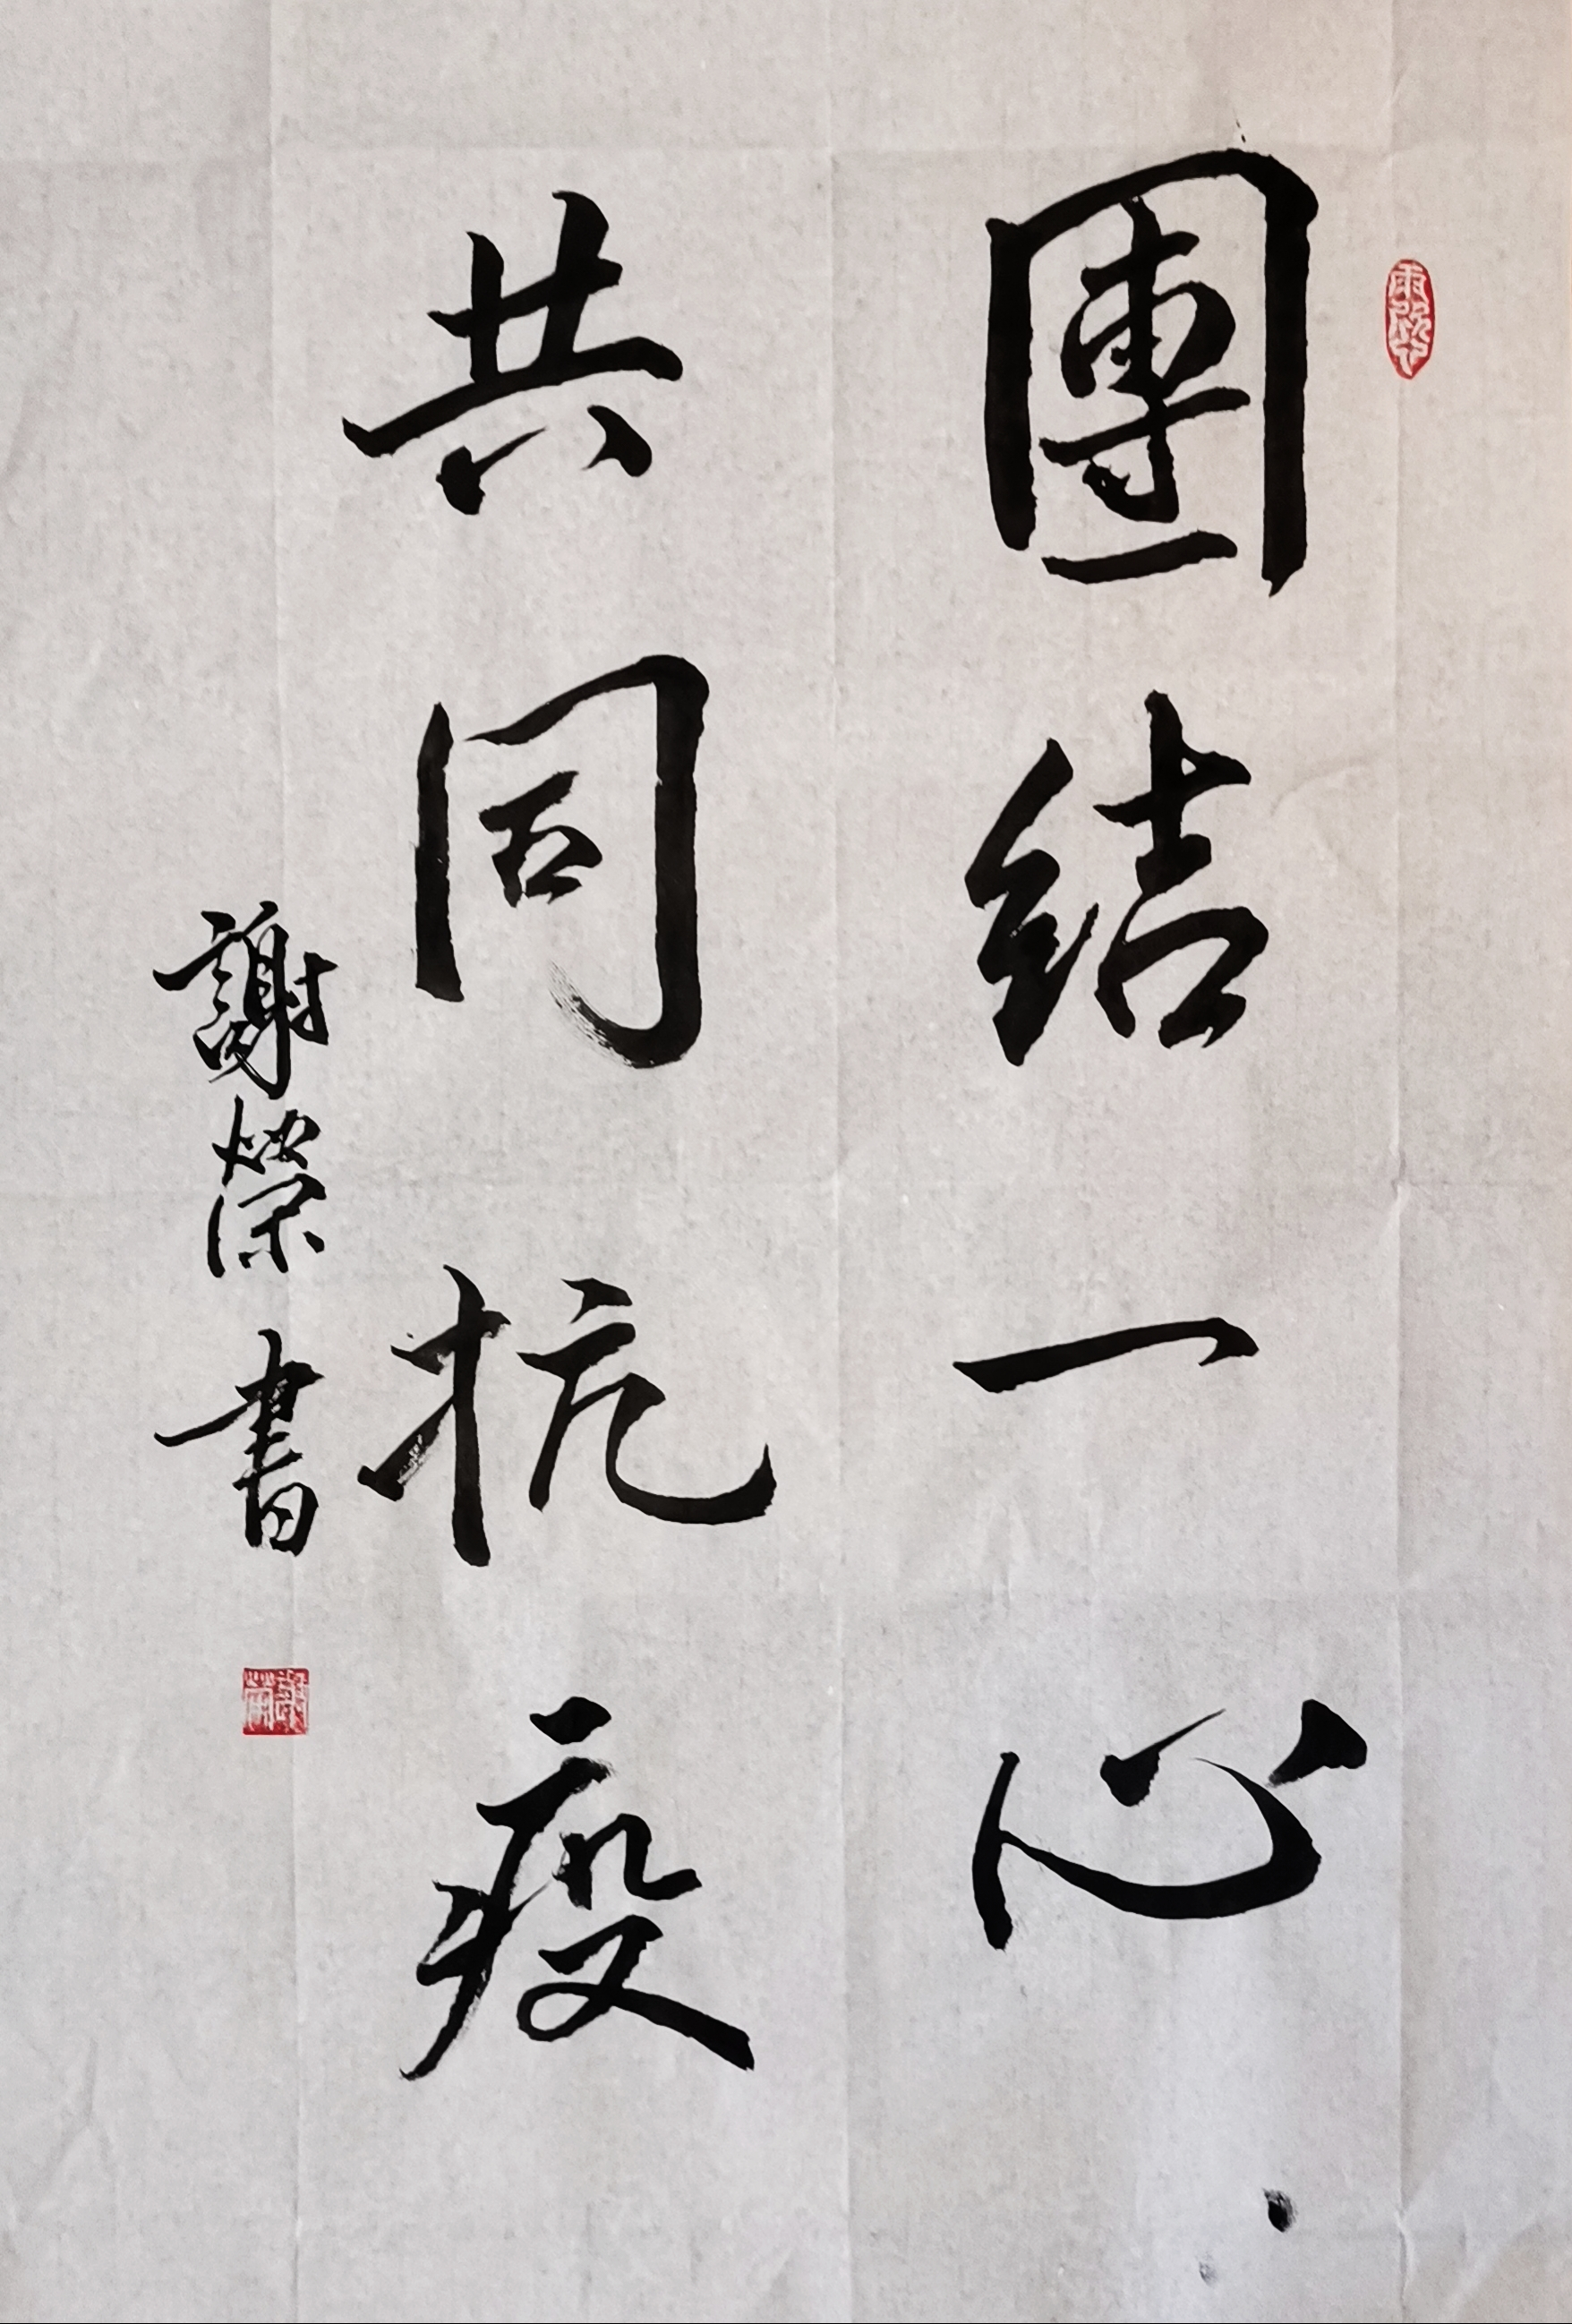 團結一心
共同抗疫
謝榮書